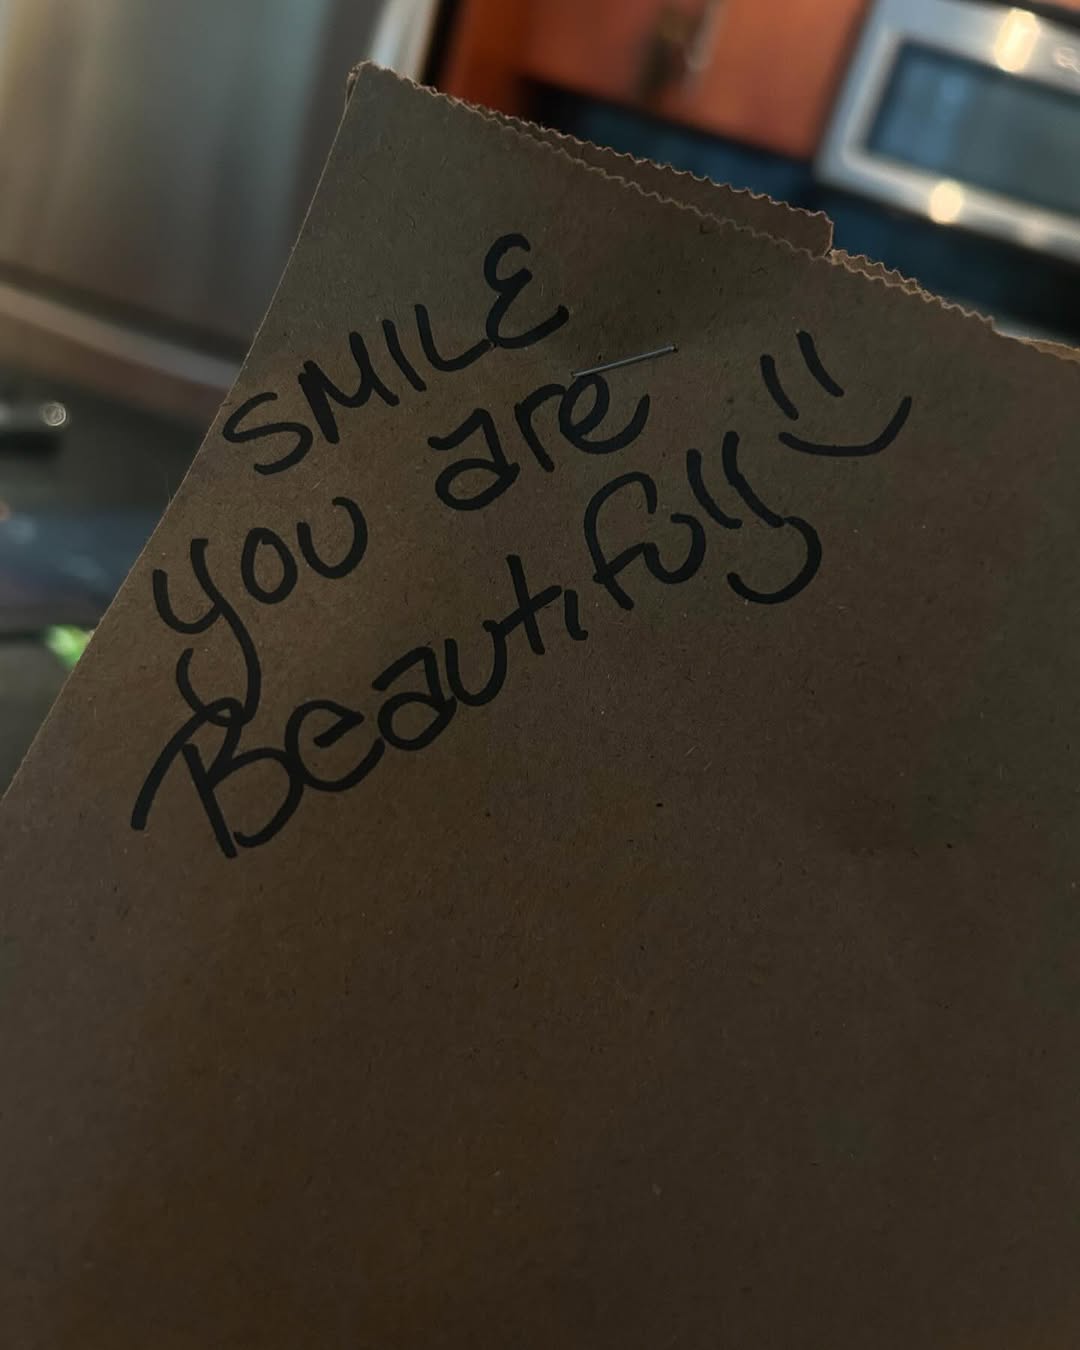 SMILE
you are
Beautiful :)